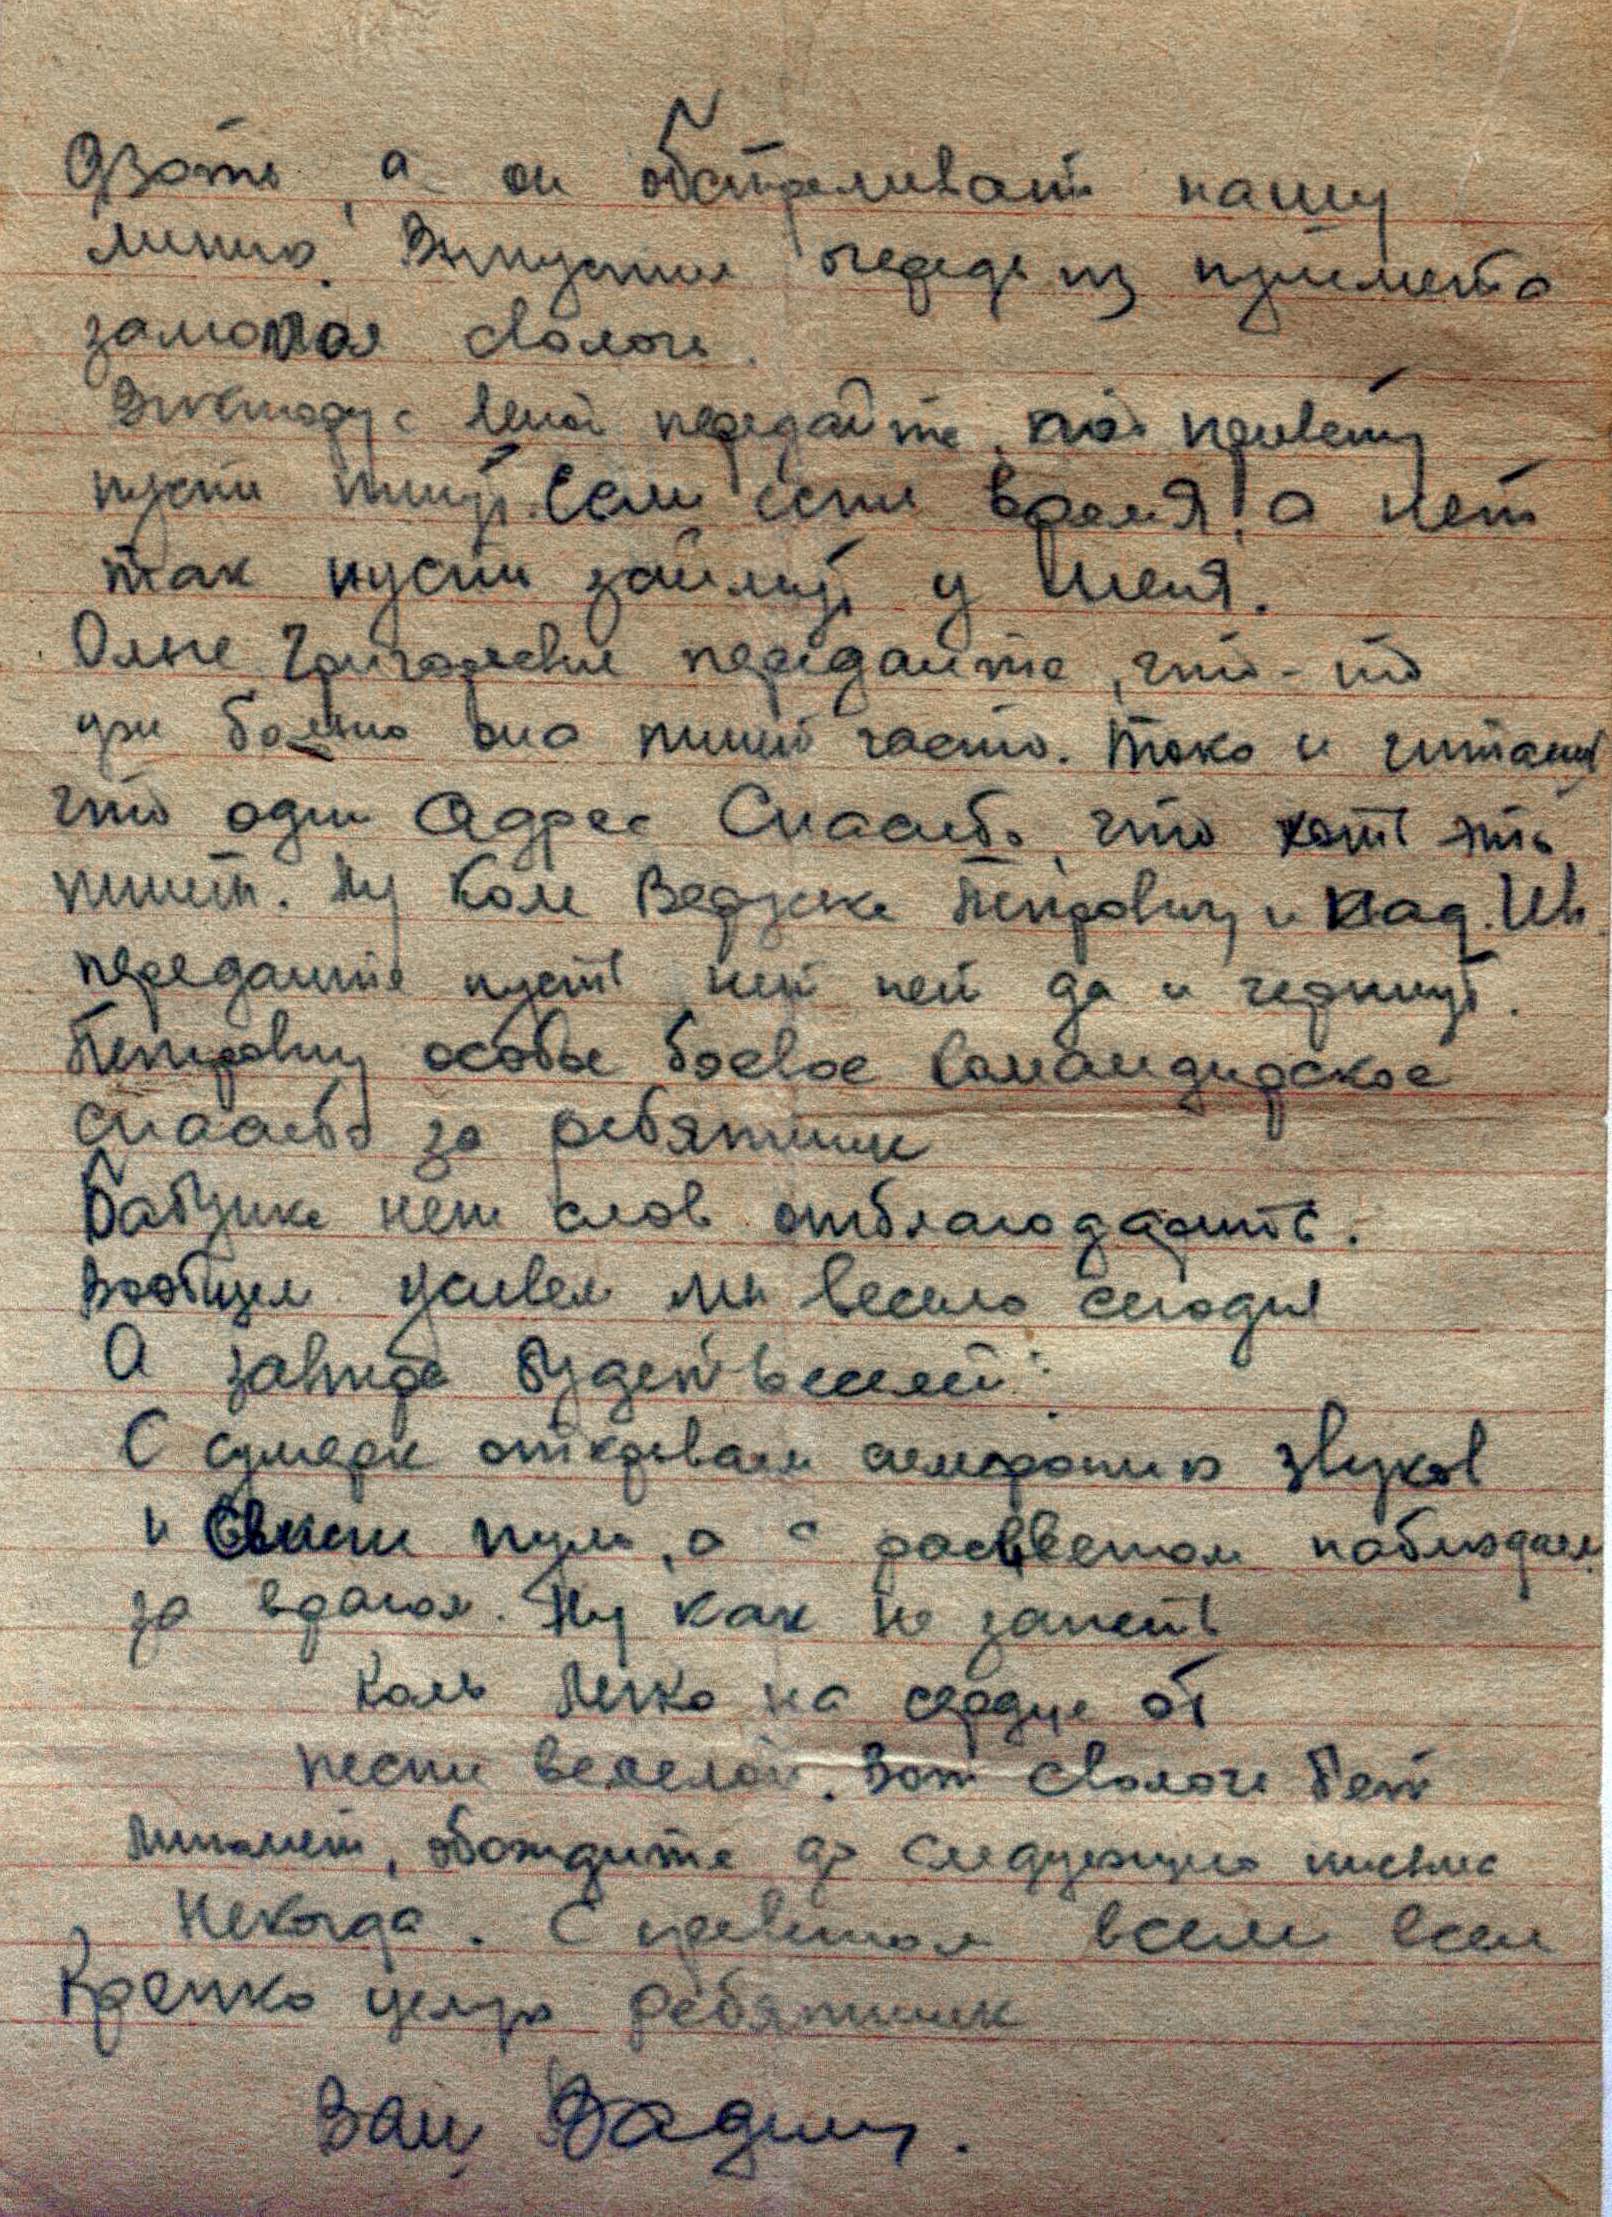 дзоте, а он обстреливат нашу
линию. Выпустил очередь из пулемета
замолчал сволочь.
Виктору с Леной передайте по привету
пусть пишут. Если есть время! а нет
так пусть займут у меня.
Ольге Григорьевне передайте, что-то
уж больно она пишит часто. Токо и читаеш
что один Адрес Спасибо, что хоть это
пишет. Ну Коле Ведузке Петровичу и Над. Ив.
передайте пусть нет нет да и черкнут.
Петровичу особое боевое командирское
спасибо за ребятишек
Бабушке нет слов отблагодарить.
Вообщем живем мы весело сегодня
А завтра будет веселей:
С сумерк открываем симфонию звуков
и свист пуль, а с расцветом наблюдаем
за врагом. Ну как не запеть
Коль легко на сердце от
песни веселой. Вот сволочь бет
миномет, обождите до следующего письма
Некогда. С приветом всем всем
Крепко целую ребятишек
Ваш Вадим.